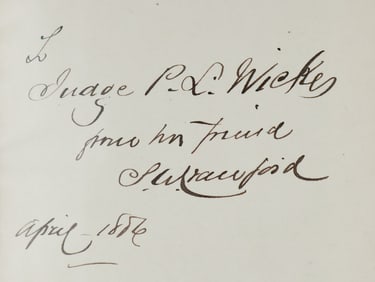 To
Judge P. L. Wickes
from his friend
S. W. Crawford
April - 1886